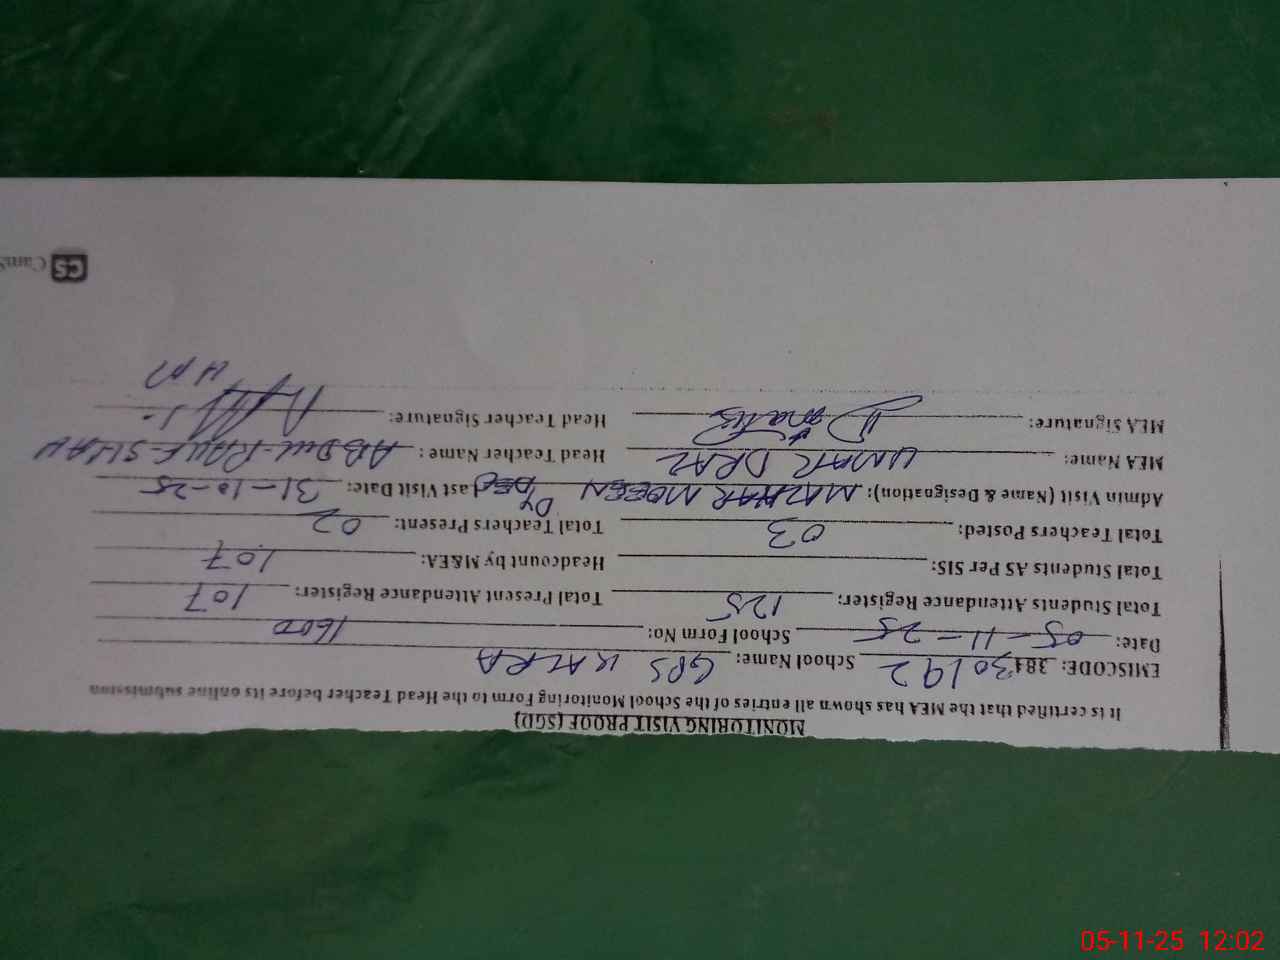 MONITORING VISIT PROOF (SGD)
It is certified that the MEA has shown all entries of the School Monitoring Form to the Head Teacher before its online submission
EMISCODE: 38430192 School Name: GPS KALRA
Date: 05-11-25 School Form No: 1600
Total Students Attendance Register: 125 Total Present Attendant Register: 107
Total Students AS Per SIS: Headcount by M&EA: 107
Total Teachers Posted: 03 Total Teachers Present: 02
Admin Visit (Name & Designation): MAZHAR MOEEN Dy DEO Last Visit Date: 31-10-25
MEA Name: UMAR DRAZ Head Teacher Name: ABDUL RAUF SHAH
MEA Signature: Head Teacher Signature:
CS CamS
05-11-25 12:02